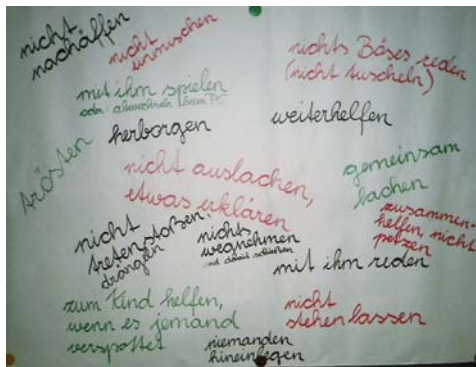 nicht
nachäffen
nicht
einmischen
nichts Böses reden
(nicht tuscheln)
mit ihm spielen
oder abwechseln beim PC
herborgen
weiterhelfen
trösten
nicht auslachen,
etwas erklären
gemeinsam
lachen
zusammen-
helfen, nicht
petzen
nicht
treten, stoßen,
drängen
nichts
wegnehmen
und damit schießen
mit ihm reden
zum Kind helfen,
wenn es jemand
verspottet
nicht
stehen lassen
niemanden
hineinlegen